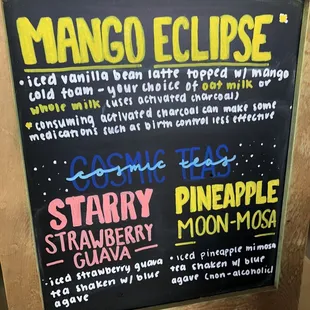 MANGO ECLIPSE
• iced vanilla bean latte topped w/ mango
cold foam - your choice of oat milk or
whole milk (uses activated charcoal)
* consuming activated charcoal can make some
medications such as birth control less effective
COSMIC TEAS
cosmic teas
STARRY
STRAWBERRY
GUAVA
• iced strawberry guava
tea shaken w/ blue
agave
PINEAPPLE
MOON-MOSA
• iced pineapple mimosa
tea shaken w/ blue
agave (non-alcoholic)